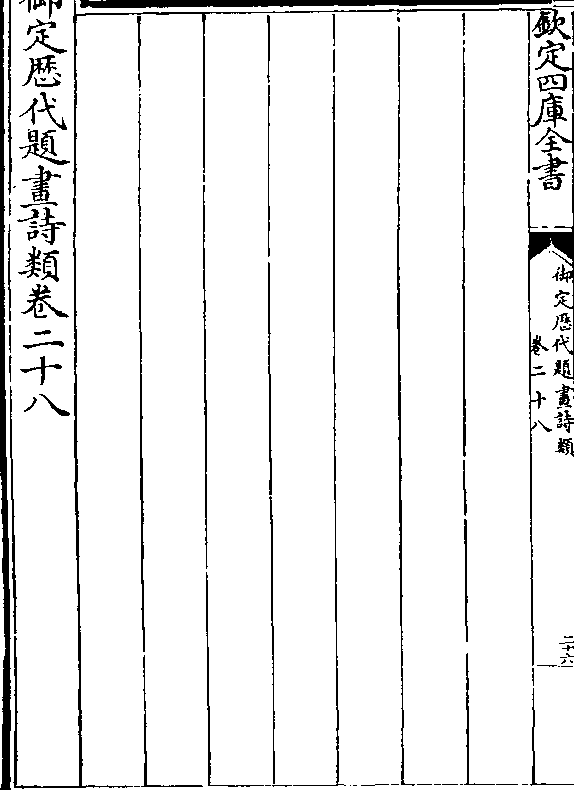 欽定四庫全書
御定歴代題畫詩類
卷二十八
二十六
御定歴代題畫詩類卷二十八